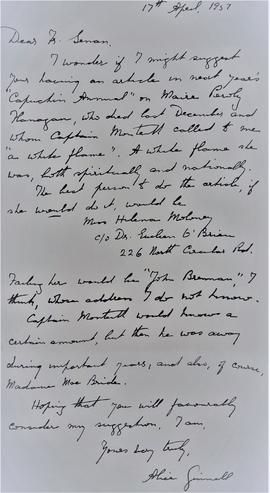 17th April, 1957
Dear Fr. Senan,
I wonder if I might suggest
your having an article in next year's
"Capuchin Annual" on Maire Perolz
Flanagan, who died last December and
whom Captain Monteith called to me
"a white flame". A white flame she
was, both spiritually and nationally.
The best person to do the article, if
she would do it, would be
Miss Helena Moloney
c/o Dr. Eveleen O'Brien
226 North Circular Rd.
Failing her would be "John Brennan," I
think, whose address I do not know.
Captain Monteith would know a
certain amount, but then he was away
during important years, and also, of course,
Madame MacBride.
Hoping that you will favourably
consider my suggestion, I am,
Yours very truly,
Alice Ginnell